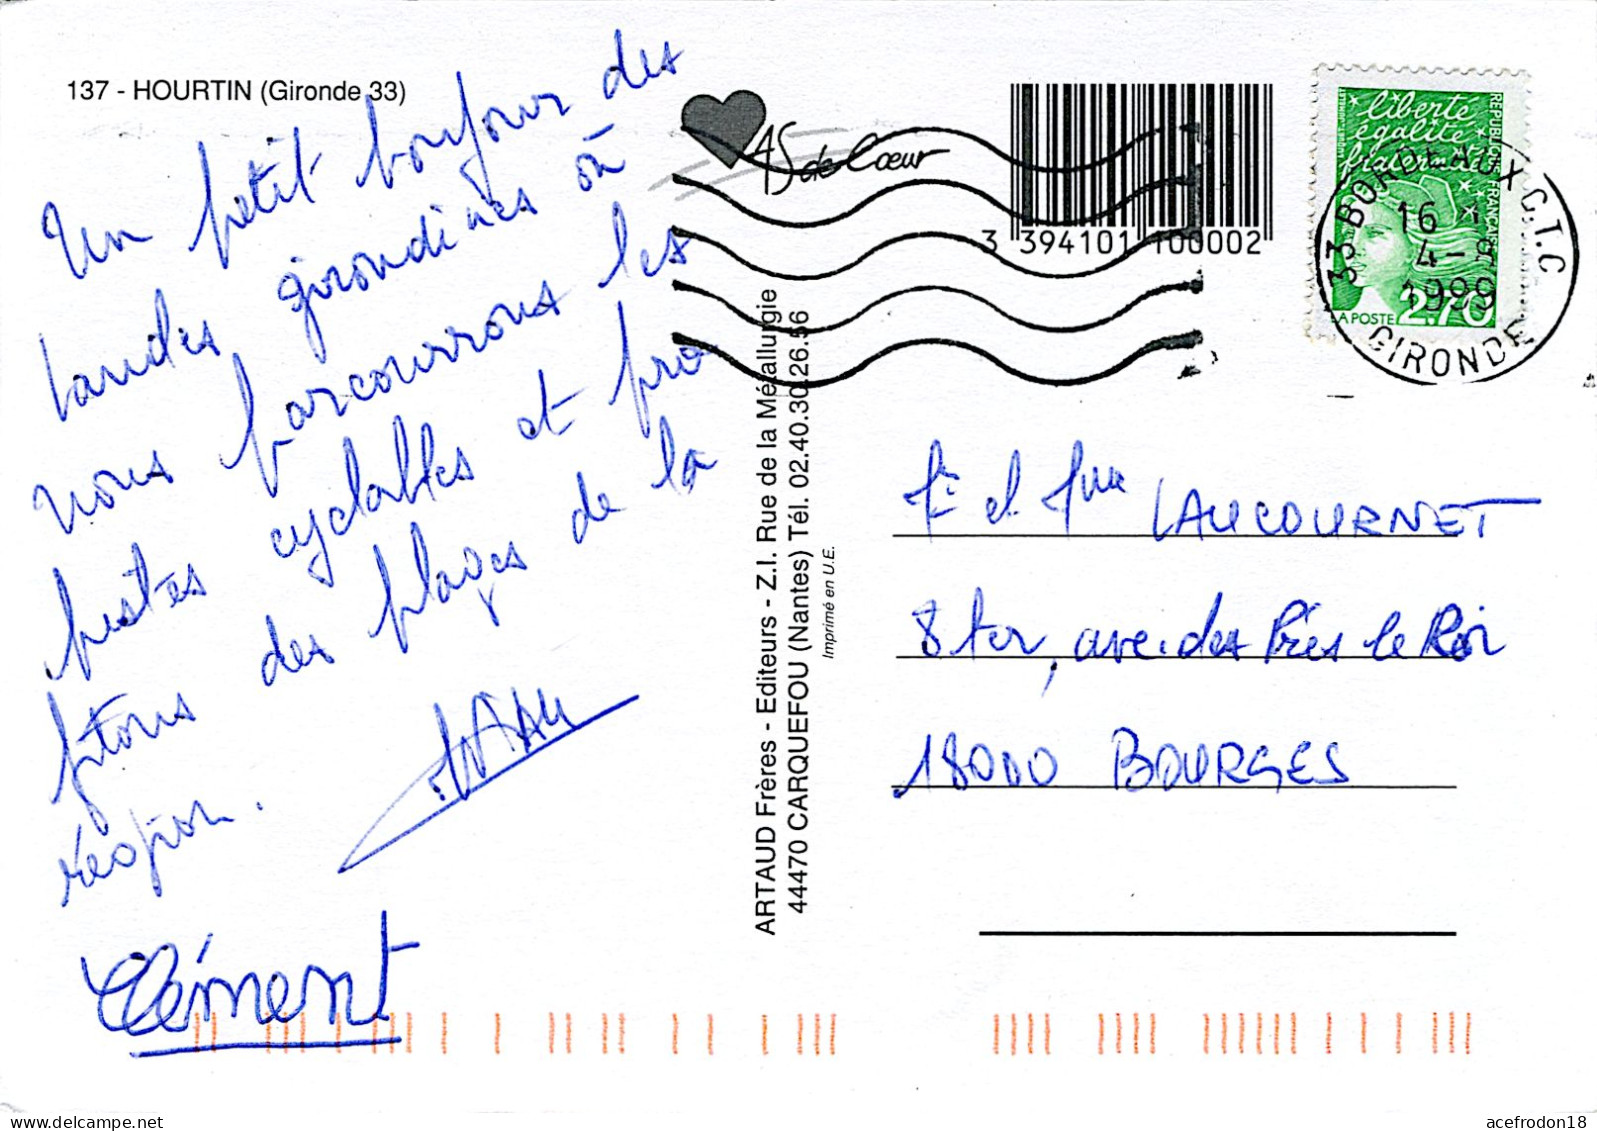 137 - HOURTIN (Gironde 33)
Un petit bonjour des
landes girondines où
nous parcourrons les
pistes cyclables et pro
fitons des plages de la
région.
Clément
ARTAUD Frères - Editeurs - Z.I. Rue de la Métallurgie
44470 CARQUEFOU (Nantes) Tél. 02.40.30.26.56
Imprimé en U.E.
AS de Cœur
3 394101 100002
liberté
égalité
fraternité
RÉPUBLIQUE FRANÇAISE
LA POSTE 2.70
33 BORDEAUX C.T.C
16
4-
1999
GIRONDE
et LAUCOURNET
8 ter, ave. des Prés le Roi
18000 BOURGES
acefrodon18